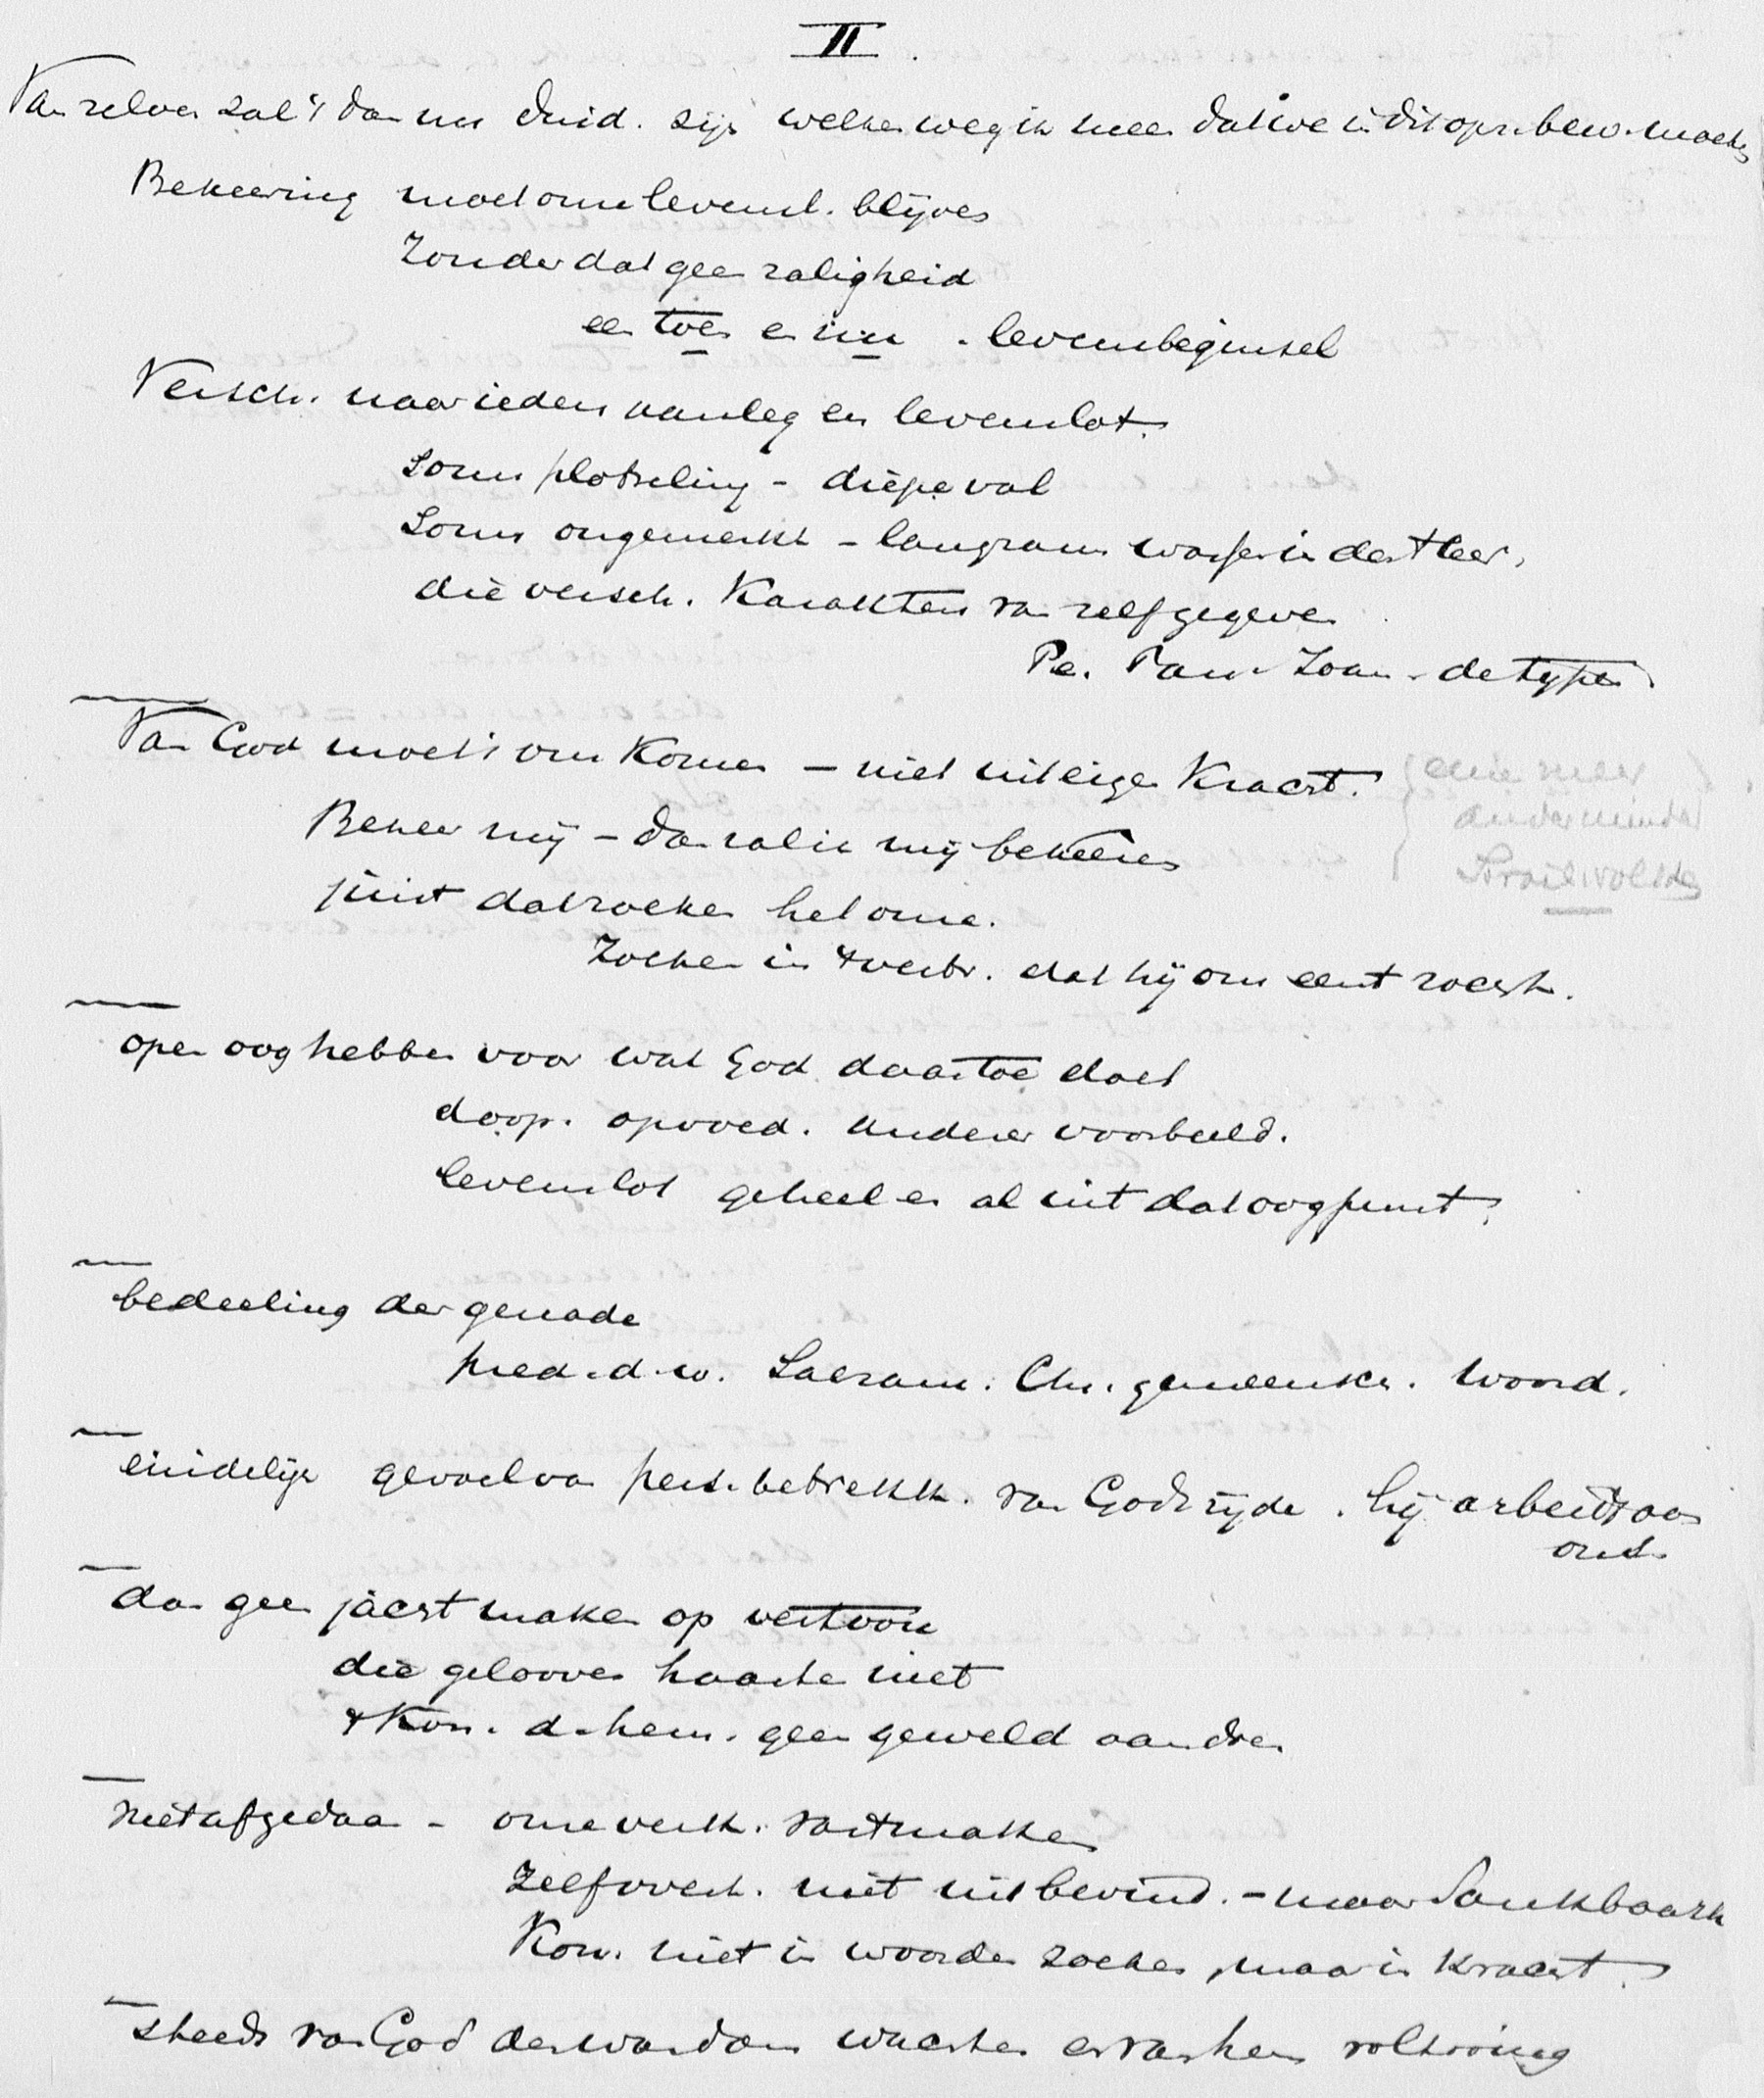 II.
Van zelven zal 't dan nu duid. zijn welken weg ik meen dat we in dit opz. bew. moeten
Bekeering moet ons levensl. blijven
Zonder dat geen zaligheid
een toen en nu . levensbeginsel
Versch. naar ieders aanleg en levenslot.
Soms plotseling - diepe val
Soms ongemerkt - langzaam wassen in den Heer,
die versch. Karakters van zelf gegeven
Pe. Paul. Joan. de typen
Van God moet 't ons komen - niet uit eigen Kracht.
eene meer
ander minder
Bekeer mij - dan zal ik mij bekeeren
juist dat zoeken het onze.
Zoeken in vertr. dat hij ons eerst zocht.
open oog hebben voor wat God daartoe doet
doop. opvoed. anderer voorbeeld.
levenslot geheel en al uit dat oogpunt.
bedeeling der genade
pred. d. w. Sacram. Chr. gemeensch. woord.
eindelijk gevoel van pers. betrekk. van Gods zijde . hij arbeidt aan
ons.
dan geen jacht maken op vertoon
die gelooven haasten niet
Kon. d. hem. geen geweld aandoen
niet afgedaan - onze verk. vast maken
Zelfonderz. niet uit bevind. - maar dankbaarh
Kon. niet in woorden zoeken, maar in kracht.
steeds van God den wasdom wachten en van hem voltooiing